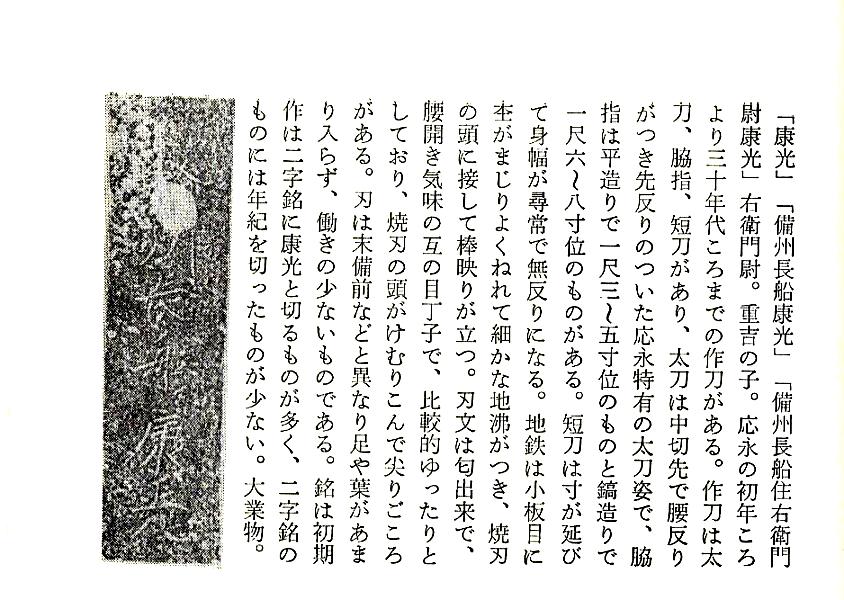 「康光」「備州長船康光」「備州長船住右衛門
尉康光」右衛門尉。重吉の子。応永の初年ころ
より三十年代ころまでの作刀がある。作刀は太
刀、脇指、短刀があり、太刀は中切先で腰反り
がつき先反りのついた応永特有の太刀姿で、脇
指は平造りで一尺三〜五寸位のものと鎬造りで
一尺六〜八寸位のものがある。短刀は寸が延び
て身幅が尋常で無反りになる。地鉄は小板目に
杢がまじりよくねれて細かな地沸がつき、焼刃
の頭に接して棒映りが立つ。刃文は匂出来で、
腰開き気味の互の目丁子で、比較的ゆったりと
しており、焼刃の頭がけむりこんで尖りごころ
がある。刃は末備前などと異なり足や葉があま
り入らず、働きの少ないものである。銘は初期
作は二字銘に康光と切るものが多く、二字銘の
ものには年紀を切ったものが少ない。大業物。